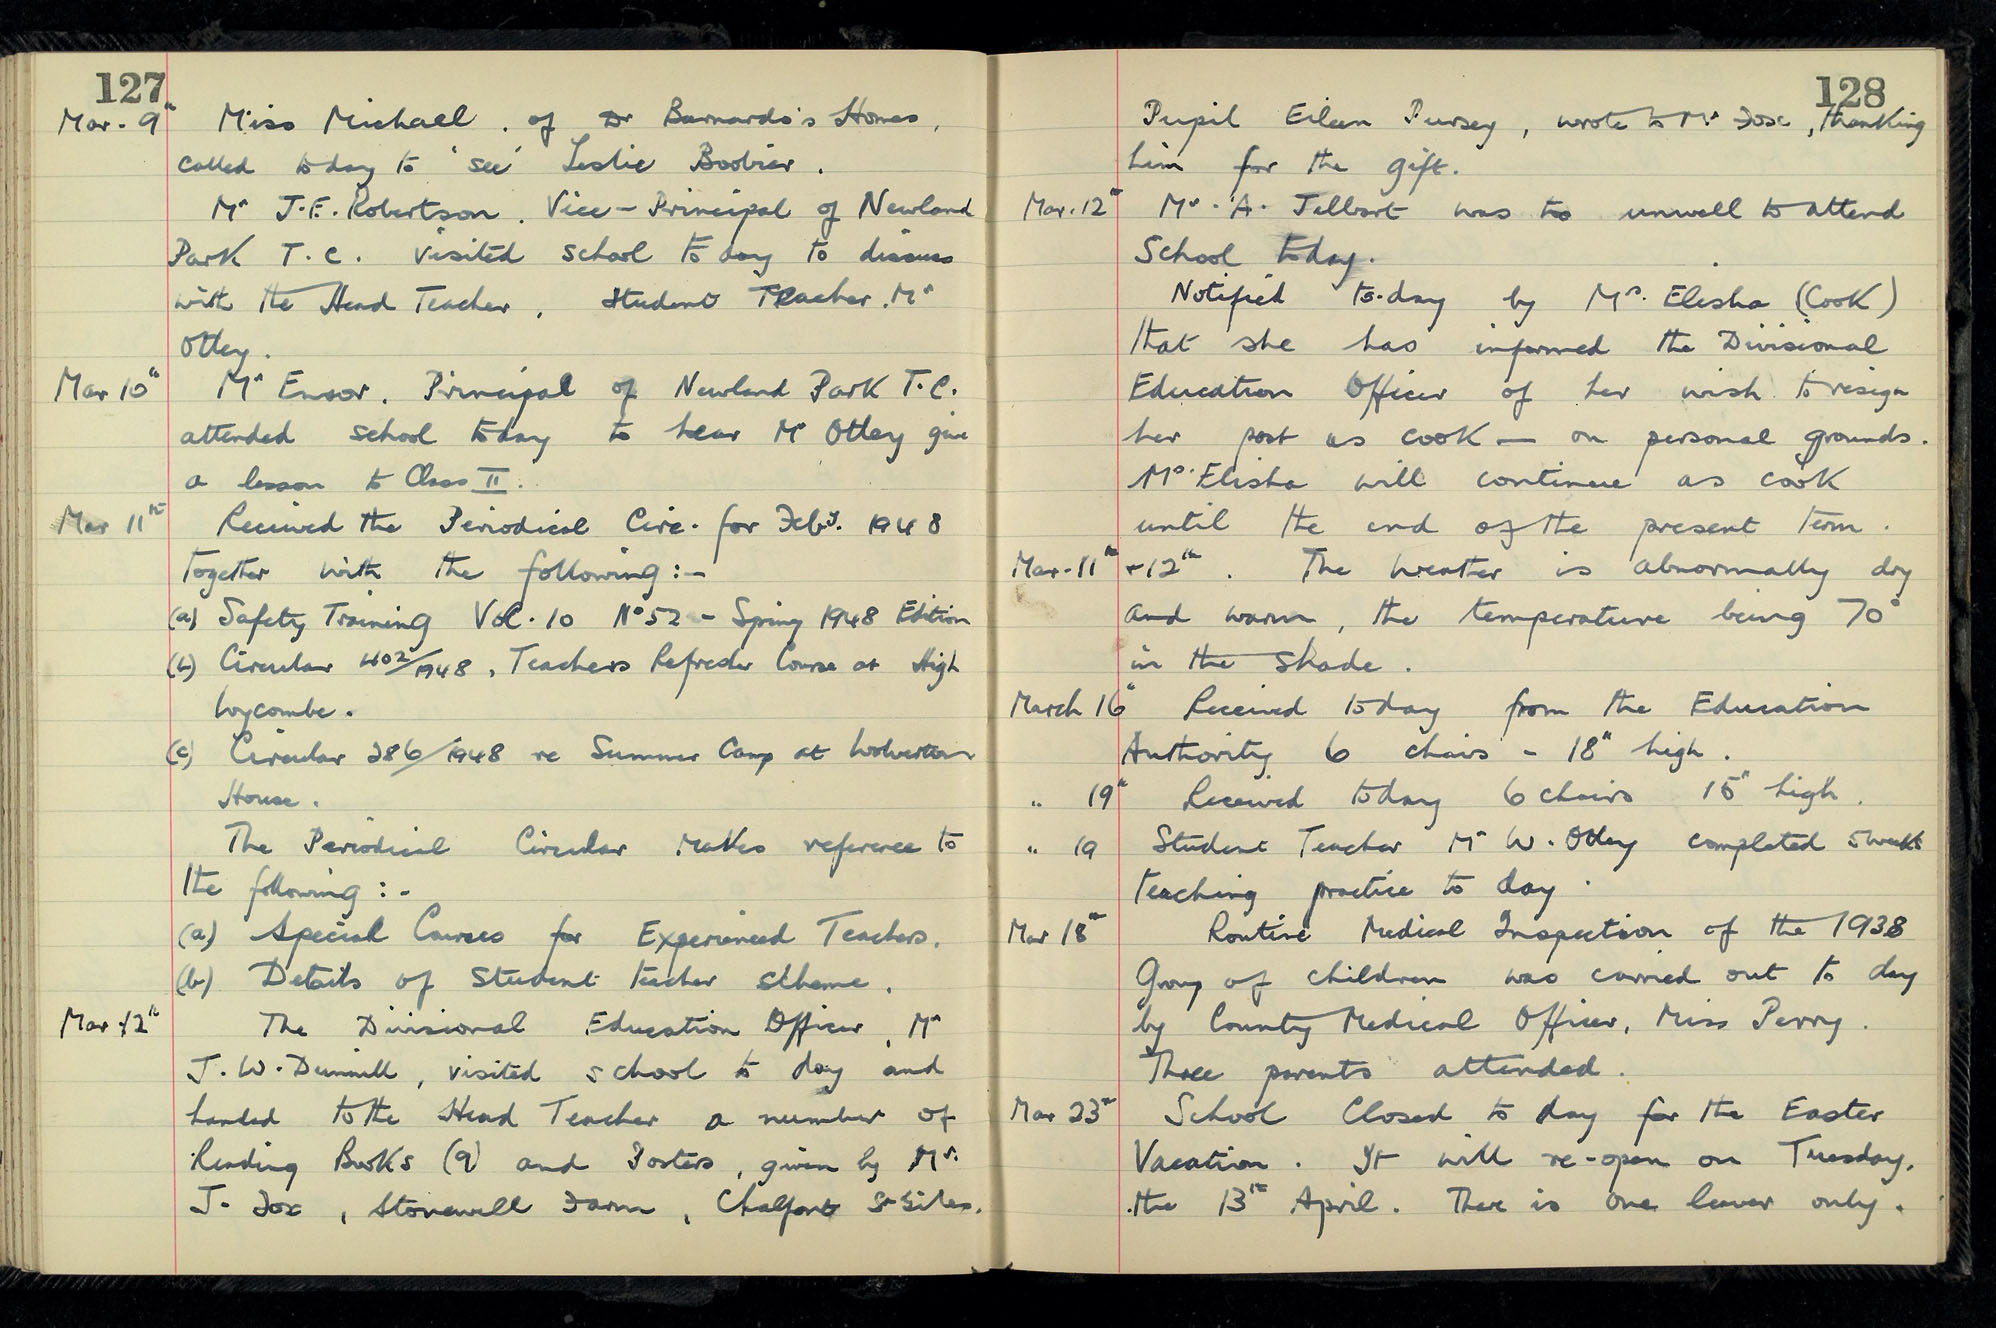 127
Mar. 9th Miss Michael, of Dr Barnardo's Homes,
called today to 'see' Leslie Boobier.
Mr J.F. Robertson. Vice-Principal of Newland
Park T.C. visited school to day to discuss
with the Head Teacher, student Teacher Mr
Otley.
Mar 10th Mr Ensor, Principal of Newland Park T.C.
attended school today to hear Mr Otley give
a lesson to Class II.
Mar 11th Received the Periodical Circ. for Feby. 1948
together with the following:-
(a) Safety Training Vol. 10 No 52 - Spring 1948 Edition
(b) Circular 402/1948, Teachers Refresher Course at High
Wycombe.
(c) Circular 286/1948 re Summer Camp at Wolverton
House.
The Periodical Circular makes reference to
the following:-
(a) Special Courses for Experienced Teachers.
(b) Details of Student teacher scheme.
Mar 12th The Divisional Education Officer, Mr
J. W. Dunnill, visited school to day and
handed to the Head Teacher a number of
Reading Books (9) and Posters, given by Mr.
J. Fox, Stonewell Farm, Chalfont St Giles.
128
Pupil Eileen Pursey, wrote to Mr Fox, thanking
him for the gift.
Mar. 12th Mr. A. Jelbart was too unwell to attend
School today.
Notified to-day by Mrs. Elisha (Cook)
that she has informed the Divisional
Education Officer of her wish to resign
her post as cook — on personal grounds.
Mrs. Elisha will continue as cook
until the end of the present term.
Mar. 11th + 12th. The weather is abnormally dry
and warm, the temperature being 70°
in the shade.
March 16th Received today from the Education
Authority 6 chairs - 18" high.
" 19th Received today 6 chairs 15" high.
" 19 Student Teacher Mr W. Otley completed 5 weeks
teaching practice to day.
Mar 18th Routine Medical Inspection of the 1938
Group of children was carried out to day
by County Medical Officer, Miss Perry.
Three parents attended.
Mar 23rd School Closed to day for the Easter
Vacation. It will re-open on Tuesday,
the 13th April. There is one leaver only.